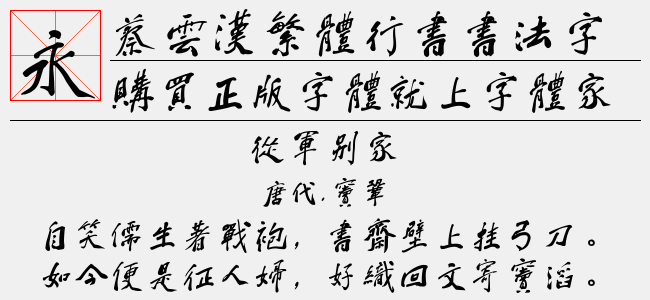 永
蔡雲漢繁體行書書法字
購買正版字體就上字體家
從軍别家
唐代.竇鞏
自笑儒生著戰袍，書齋壁上挂弓刀。
如今便是征人婦，好織回文寄竇滔。